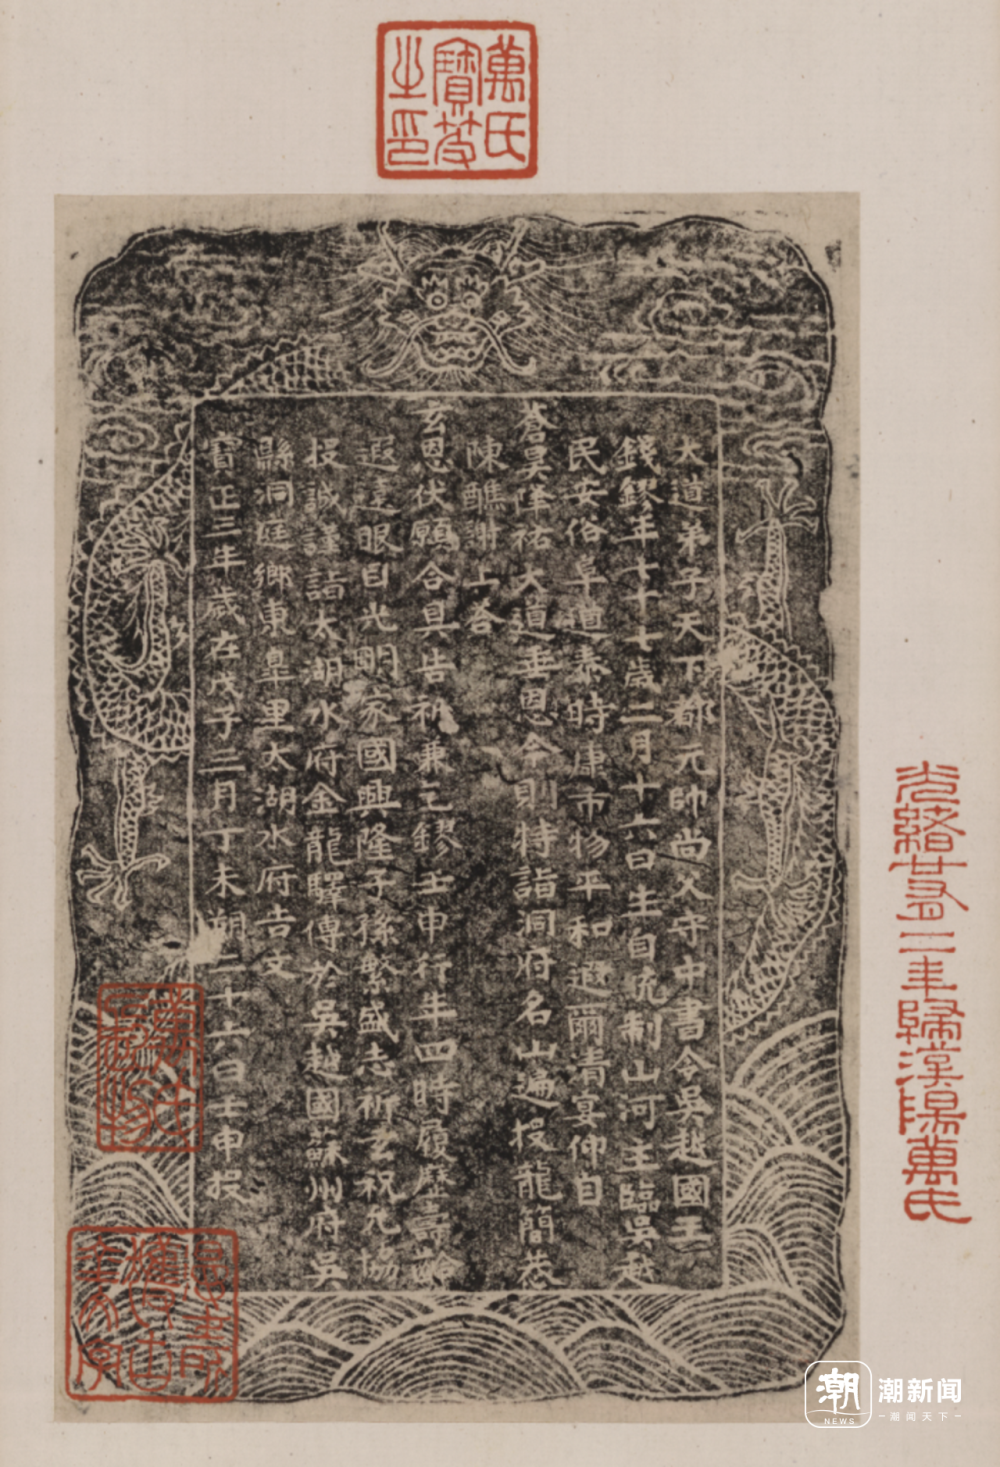 萬氏
之印
大道弟子天下都元帥尚父守中書令吳越國王
錢鏐年七十七歲二月十六日生自統制山河主臨吳越
民安俗阜道泰時康市物平和遐爾清宴仰自
蒼昊降祐大道垂恩今則特詣洞府名山遍投龍簡恭
陳醮謝上答
玄恩伏願合具告祈兼乞鏐壬申行年四時履歷壽齡
遐遠眼目光明家國興隆子孫繁盛志祈玄祝允協
投誠謹詣太湖水府金龍驛傳於吳越國蘇州府吳
縣洞庭鄉東皋里太湖水府告文
寶正三年歲在戊子三月丁未朔二十六日壬申投
光緒廿有二年歸漢陽萬氏
潮 NEWS
潮新闻
潮闻天下